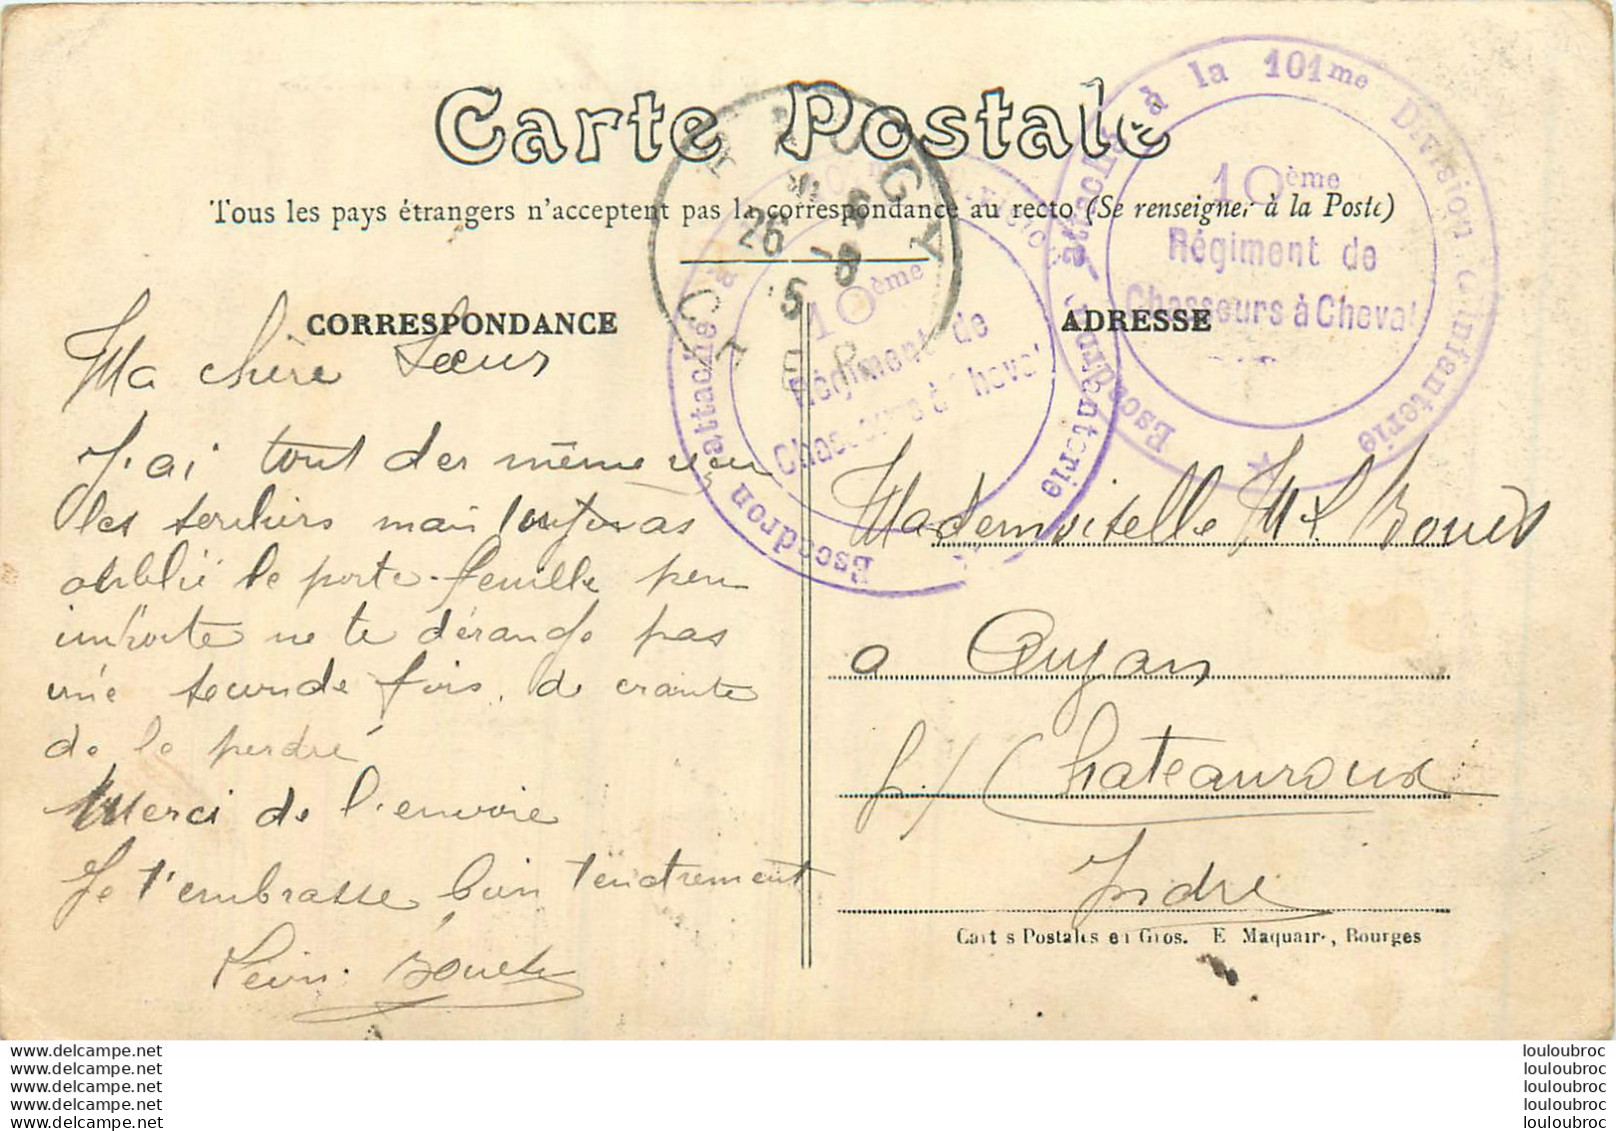 Carte Postale
Tous les pays étrangers n'acceptent pas la correspondance au recto (Se renseigner à la Poste)
CORRESPONDANCE
Ma chère Sœur
J'ai tout de même
les
oublié le porte-feuille peu
importe ne te dérange pas
une seconde fois, de crainte
de le perdre
Merci de l'envoie
Je t'embrasse bien tendrement
ADRESSE
Mademoiselle
a
Chateauroux
Indre
Cartes Postales en Gros. E Maquaire, Bourges
Escadron attaché à la 101me Division d'Infanterie
10ème
Régiment de
Chasseurs à Cheval
Escadron attaché à
Infanterie
10ème
Régiment de
Chasseurs à Cheval
26 -8
www.delcampe.net
www.delcampe.net
www.delcampe.net
www.delcampe.net
www.delcampe.net
louloubroc
louloubroc
louloubroc
louloubroc
louloubroc